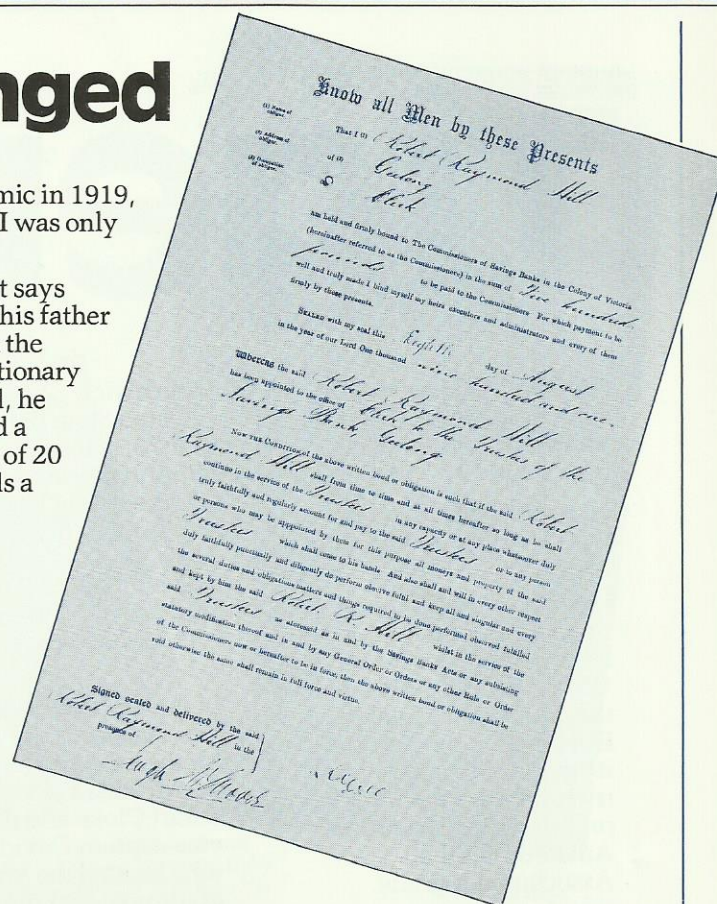 nged
mic in 1919,
I was only
t says
his father
the
tionary
l, he
d a
of 20
ls a
Know all Men by these Presents
(1) Name of
obligor.
That I (1) Robert Raymond Hill
(2) Address of
obligor.
of (2) Geelong
(3) Occupation
of obligor.
(3) Clerk
am held and firmly bound to The Commissioners of Savings Banks in the Colony of Victoria
(hereinafter referred to as the Commissioners) in the sum of Five hundred
pounds to be paid to the Commissioners For which payment to be
well and truly made I bind myself my heirs executors and administrators and every of them
firmly by these presents.
SEALED with my seal this Eighth day of August
in the year of our Lord One thousand nine hundred and one.
Whereas the said Robert Raymond Hill
has been appointed to the office of Clerk to the Trustees of the
Savings Bank, Geelong
NOW THE CONDITION of the above written bond or obligation is such that if the said Robert
Raymond Hill shall from time to time and at all times hereafter so long as he shall
continue in the service of the Trustees in any capacity or at any place whatsoever duly
truly faithfully and regularly account for and pay to the said Trustees or to any person
or persons who may be appointed by them for this purpose all moneys and property of the said
Trustees which shall come to his hands. And also shall and will in every other respect
duly faithfully punctually and diligently do perform observe fulfil and keep all and singular and every
the several duties and obligations matters and things required to be done performed observed fulfilled
and kept by him the said Robert R. Hill whilst in the service of the
said Trustees as aforesaid as in and by the Savings Banks Acts or any subsisting
statutory modification thereof and in and by any General Order or Orders or any other Rule or Order
of the Commissioners now or hereafter to be in force, then the above written bond or obligation shall be
void otherwise the same shall remain in full force and virtue.
Signed sealed and delivered by the said
Robert Raymond Hill in the
presence of
Hugh